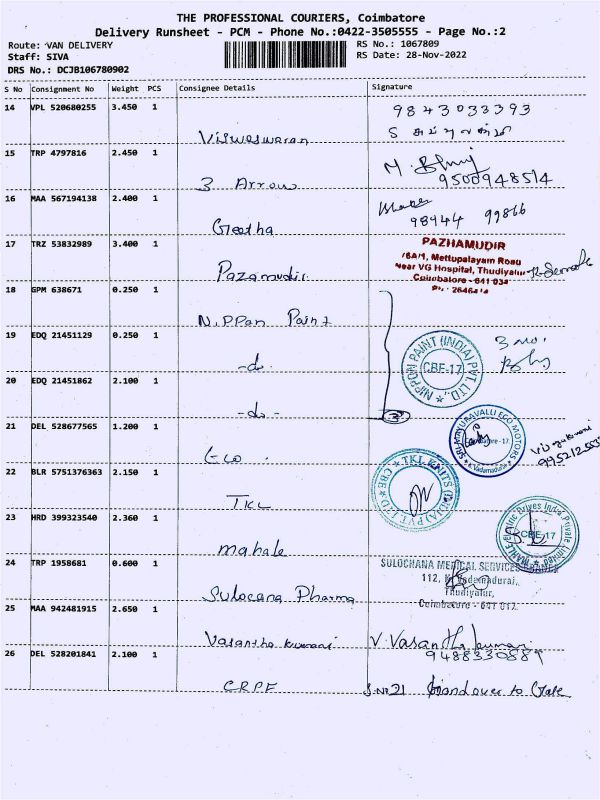 THE PROFESSIONAL COURIERS, Coimbatore
Delivery Runsheet - PCM - Phone No.:0422-3505555 - Page No.:2
Route: VAN DELIVERY
RS No.: 1067809
Staff: SIVA
RS Date: 28-Nov-2022
DRS No.: DCJB106780902
S No Consignment No Weight PCS Consignee Details Signature
14 VPL 520680255 3.450 1
9843033393
Visweswaran
15 TRP 4797816 2.450 1
9500948514
3 Arrow
16 MAA 567194138 2.400 1
98944 99866
Geetha
17 TRZ 53832989 3.400 1
PAZHAMUDIR
/6A/1, Mettupalayam Road
Near VG Hospital, Thudiyalur
Coimbatore - 641 034
Pazamudir
18 GPM 638671 0.250 1
Nippon Paint
19 EDQ 21451129 0.250 1
NIPPON PAINT (INDIA) PVT. LTD.,
CBE-17
3 no.
-do-
20 EDQ 21451862 2.100 1
-do-
3
21 DEL 528677565 1.200 1
SRI MAYURAVALLI ECO MOTORS
Coimbatore-17.
Eco
22 BLR 5751376363 2.150 1
TKL KNITS (INDIA) PVT. LTD
CBE
TKL
23 HRD 399323540 2.360 1
MAHLE Electric Drives India Private Limited
CBE-17
mahale
24 TRP 1958681 0.600 1
SULOCHANA MEDICAL SERVICES
112,
Thudiyalur,
Coimbatore - 641 017.
Sulocana Pharma
25 MAA 942481915 2.650 1
Vasantha kumari
V. Vasantha kumari
26 DEL 528201841 2.100 1
CRPF
S.No 21 Handover to Gate